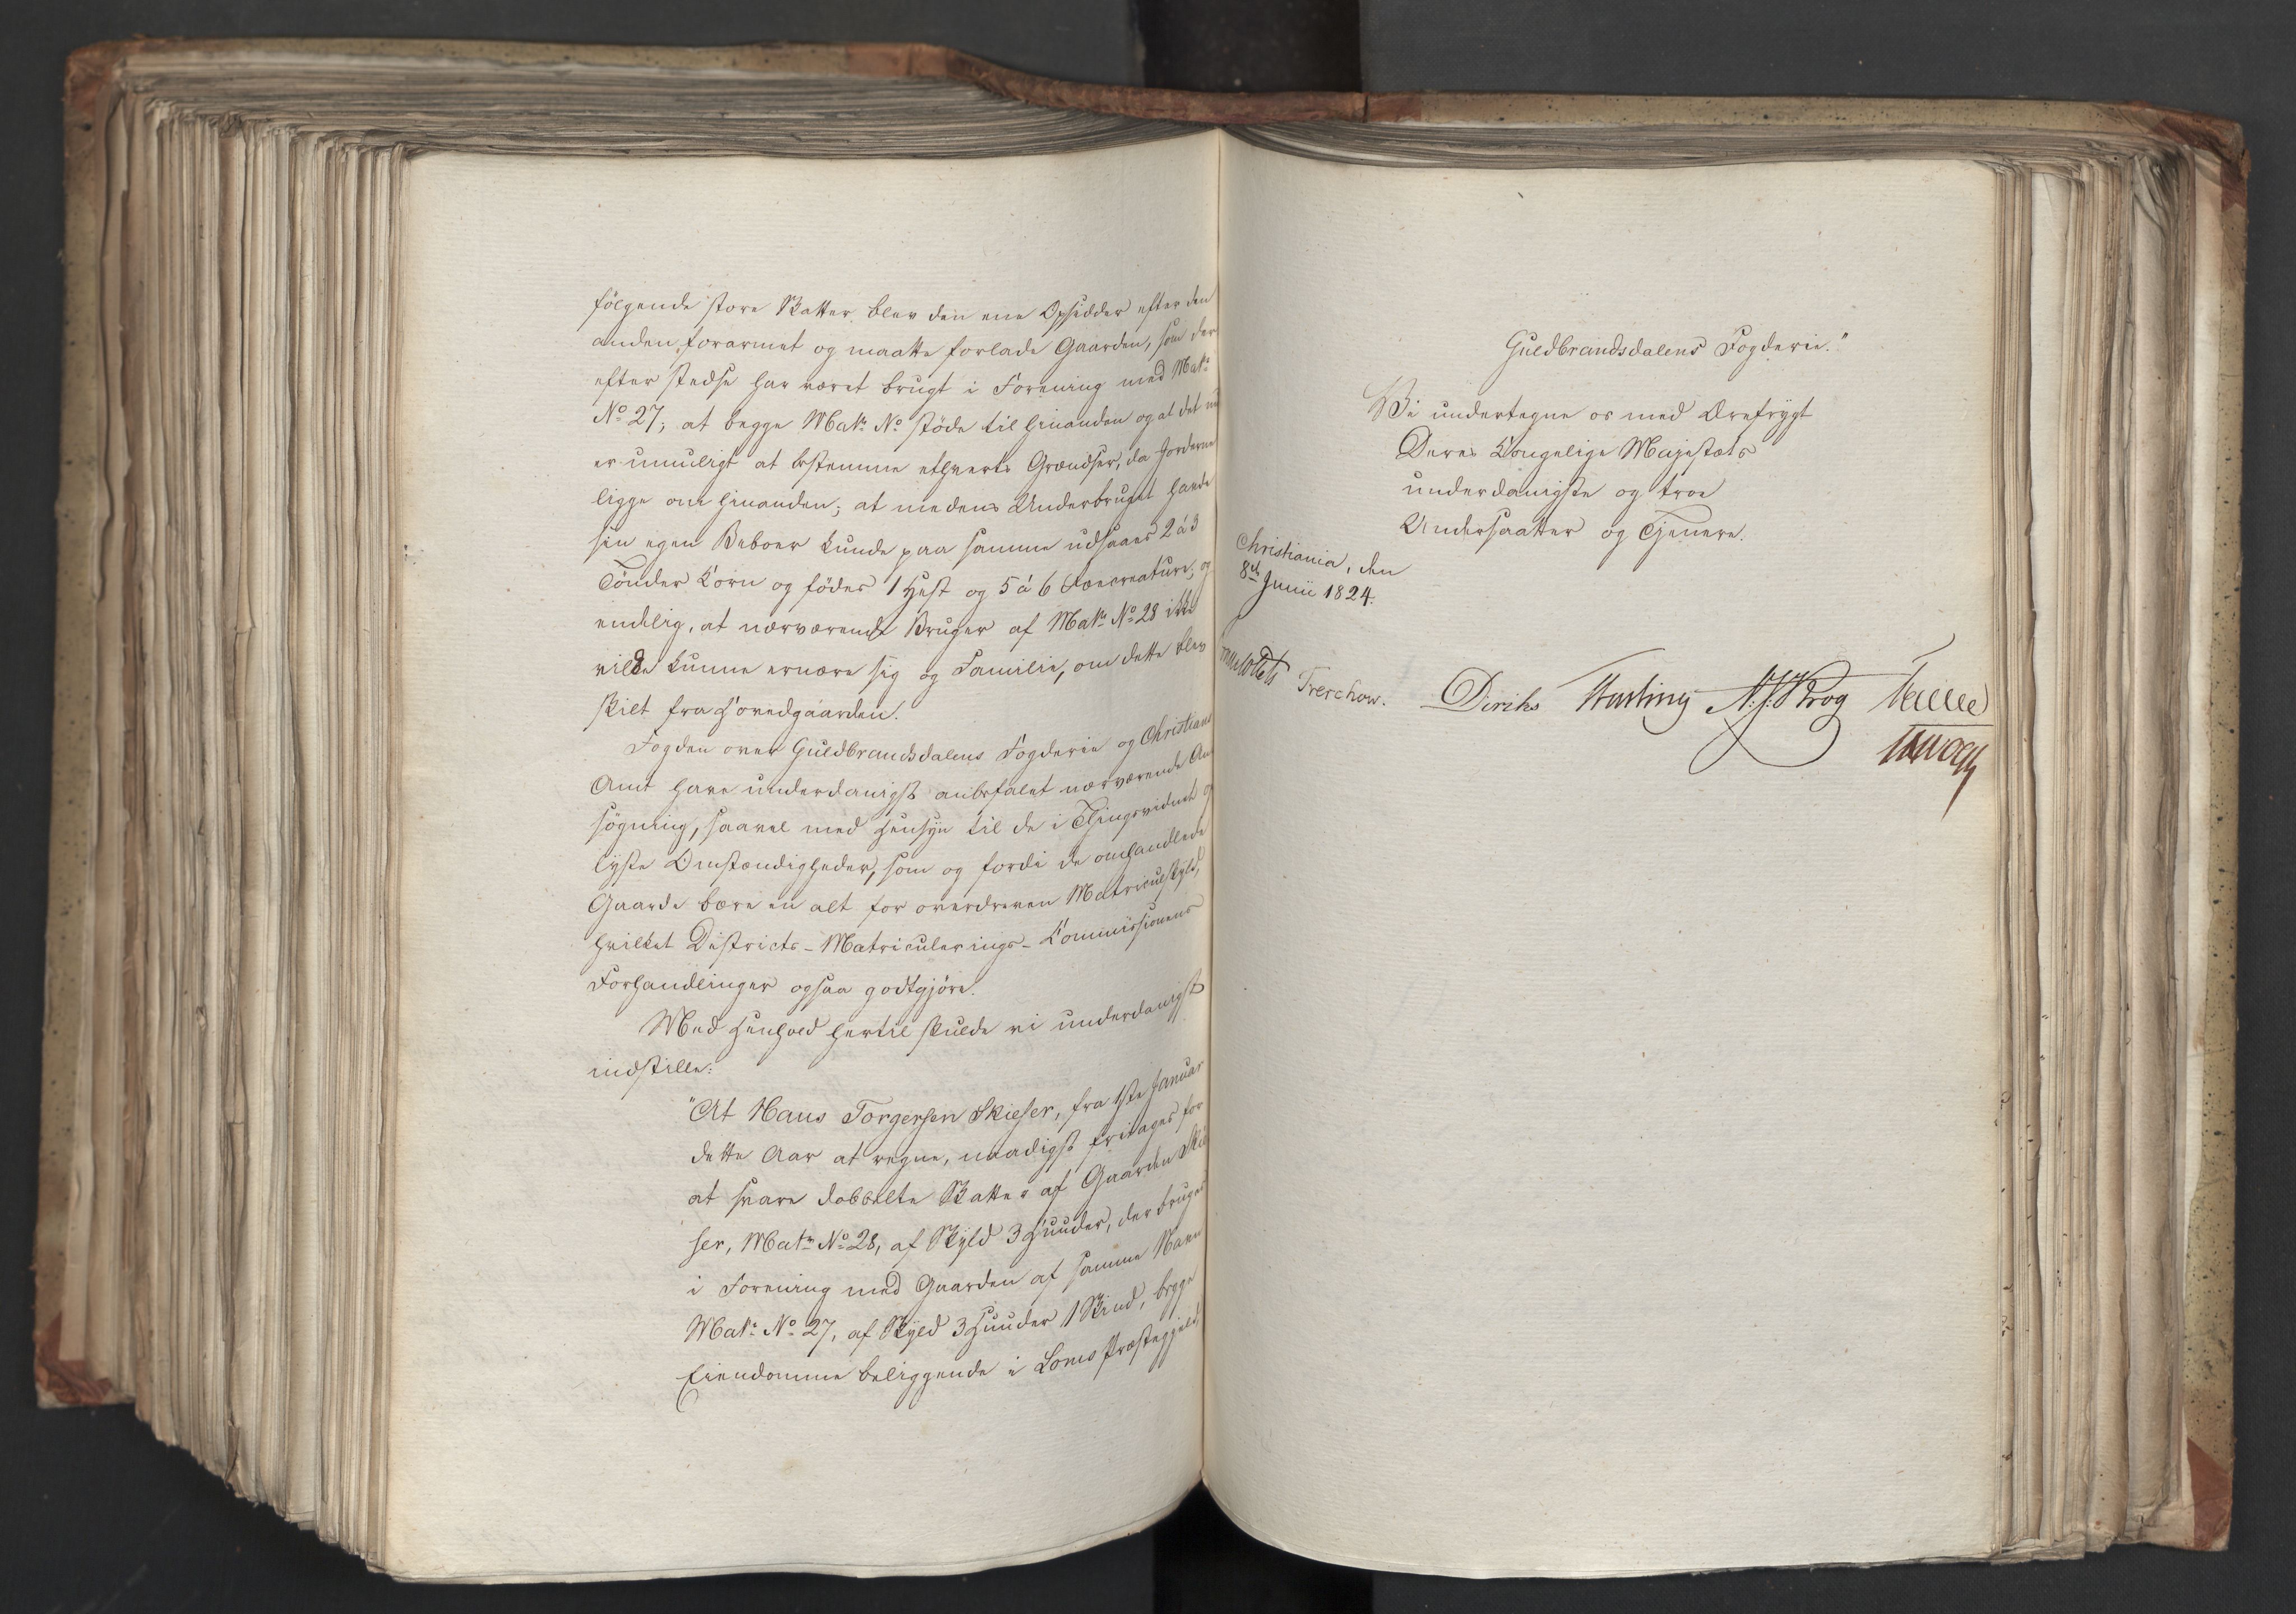 fölgende store Skatter blev den ene Opsidder efter den
anden forarmet og maatte forlade Gaarden, som der
efter stedse har været brugt i Forening med Matr:
No 27; at begge Matr: No støde til hinanden og at det nu
er umuligt at bestemme ethverts Grændser, da Jorderne
ligge om hinanden; at medens Underbruget havde
sin egen Beboer kunde paa samme udsaaes 2 á 3
Tönder Korn og födes 1 Hest og 5 á 6 Køecreature; og
endelig, at nærværende Bruger af Matr: No 28 ikke
vilde kunne ernære sig og Familie, om dette blev
skilt fra Hovedgaarden.
Fogden over Guldbrandsdalens Fogderie og Christians
Amt have underdanigst anbefalet nærværende An
søgning, saavel med Hensyn til de i Thingsvidnet op
lyste Omstændigheder, som og fordi de omhandlede
Gaarde bære en alt for overdreven Matriculskyld,
hvilket Districts-Matriculerings-Commissionens
Forhandlinger ogsaa godtgjöre.
Med Henhold hertil skulde vi underdanigst
indstille:
"At Hans Torgersen Skieser, fra 1ste Januar
dette Aar at regne, naadigst fritages for
at svare dobbelte Skatter af Gaarden Skie
ser, Matr: No 28, af Skyld 3 Huuder, der bruges
i Forening med Gaarden af samme Navn
Matr: No 27, af Skyld 3 Huuder 1 Skind, begge
Eiendomme beliggende i Loms Præstegjeld,
Guldbrandsdalens Fogderie."
Vi undertegne os med Ærefrygt
Deres Kongelige Majestæts
underdanigste og troe
Undersaatter og Tjenere.
Christiania, den
8de Junii 1824.
Treschow. Diriks Hasting N. J. Krog